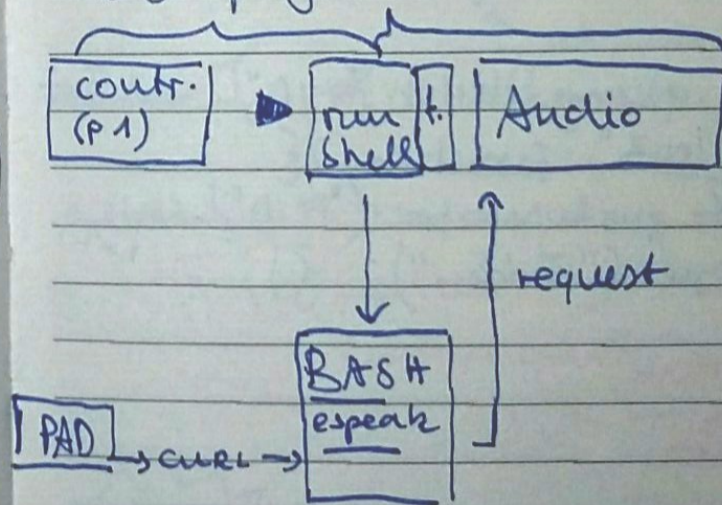 contr.
(p1)
run
shell
t.
Audio
request
BASH
espeak
PAD
CURL